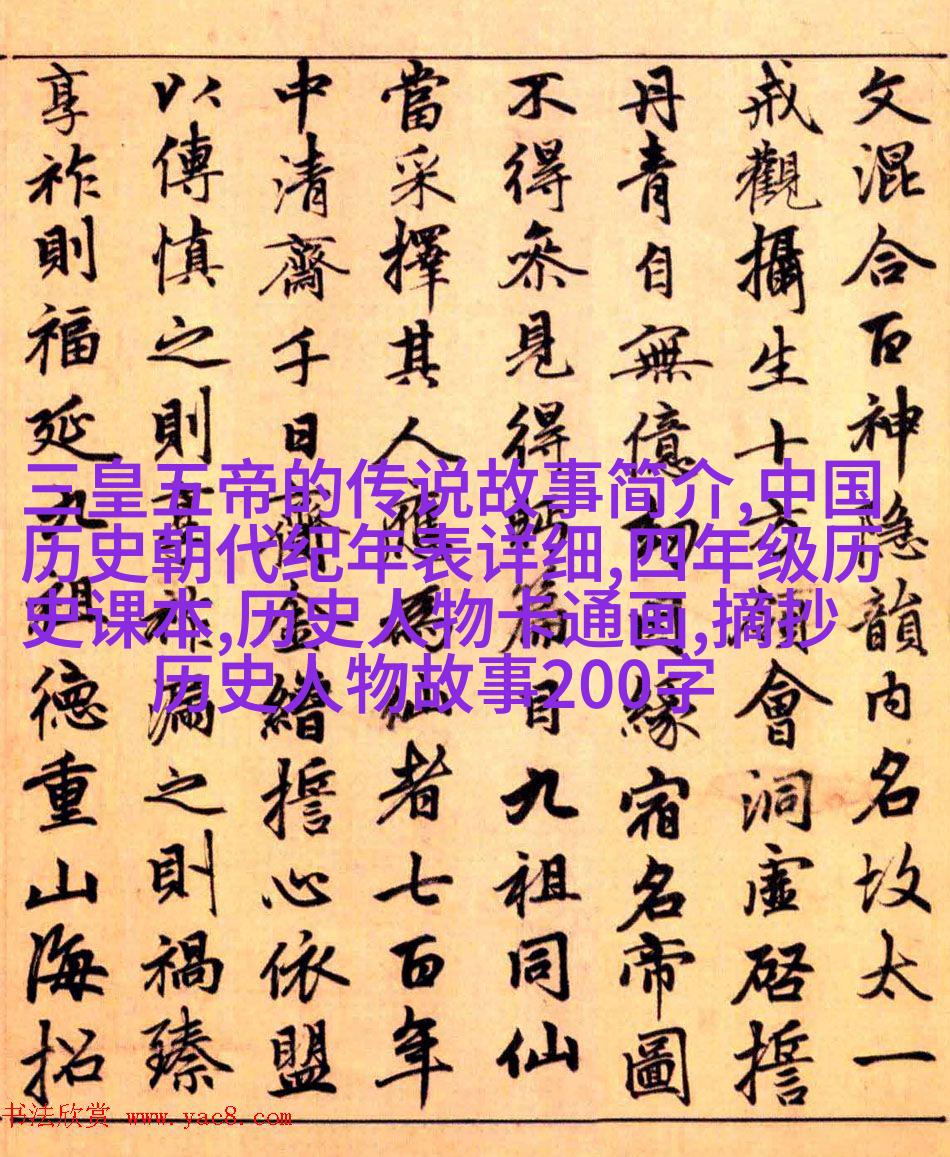 文混合百神隐韻内名太一
戒觀攝生十方會洞虚啓誓
丹青自無億劫因緣宿名帝圖
不得叅見得眄篇目九祖同仙
當采擇其人應爲仙者七百年
中清齋千日齎金繒誓心依盟
以傳慎之則享祚漏之則禍臻
享祚則福延九祖德重山海招
三皇五帝的传说故事简介,中国
历史朝代纪年表详细,四年级历
史课本,历史人物卡通画,摘抄
历史人物故事200字
书法欣赏 www.yac8.com